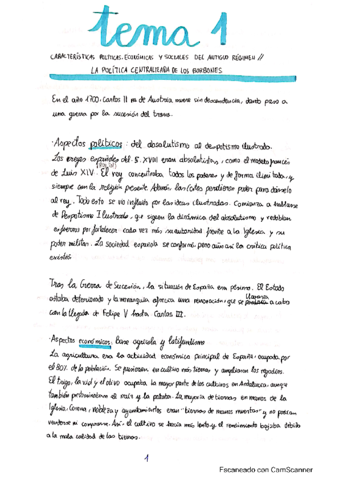 tema 1
CARACTERÍSTICAS POLÍTICAS, ECONÓMICAS Y SOCIALES DEL ANTIGUO RÉGIMEN //
LA POLÍTICA CENTRALIZADA DE LOS BORBONES
En el año 1700, Carlos II de Austria muere sin descendencia, dando paso a
una guerra por la sucesión del trono.
·Aspectos políticos: del absolutismo al despotismo ilustrado.
Los reyes españoles del S. XVIII eran absolutistas, como el modelo francés
de Luis XIV. El rey concentraba todos los poderes y de forma ilimitada, y
siempre con la religión presente. Además, las Cortes perdieron poder para dárselo
al rey. Todo esto se vio influido por las ideas ilustradas. Comienza a hablarse
de Despotismo Ilustrado, que siguen la dinámica del absolutismo y redoblan
esfuerzos por fortalecer cada vez más su autoridad frente a la Iglesia y su
poder militar. La sociedad española se conformó pero aún así la crítica política
existió.
Tras la Guerra de Sucesión, la situación de España era pésima. El Estado
estaba deteriorado y la monarquía ofrecía una renovación, que se llevaría a cabo
con la llegada de Felipe V hasta Carlos III.
·Aspectos económicos: base agrícola y latifundismo
La agricultura era la actividad económica principal de España, ocupada por
el 80% de la población. Se pusieron en cultivo más tierras y ampliaron los regadíos.
El trigo, la vid y el olivo ocupaba la mayor parte de los cultivos en Andalucía, aunque
también la patata. La mayoría de tierras en manos de la
Iglesia, Corona, nobleza y ayuntamientos eran "tierras de manos muertas" y no podían
venderse ni comprarse. Así, el cultivo se hacía más lento y el rendimiento bajaba debido
a la mala calidad de las tierras.
1
Escaneado con CamScanner